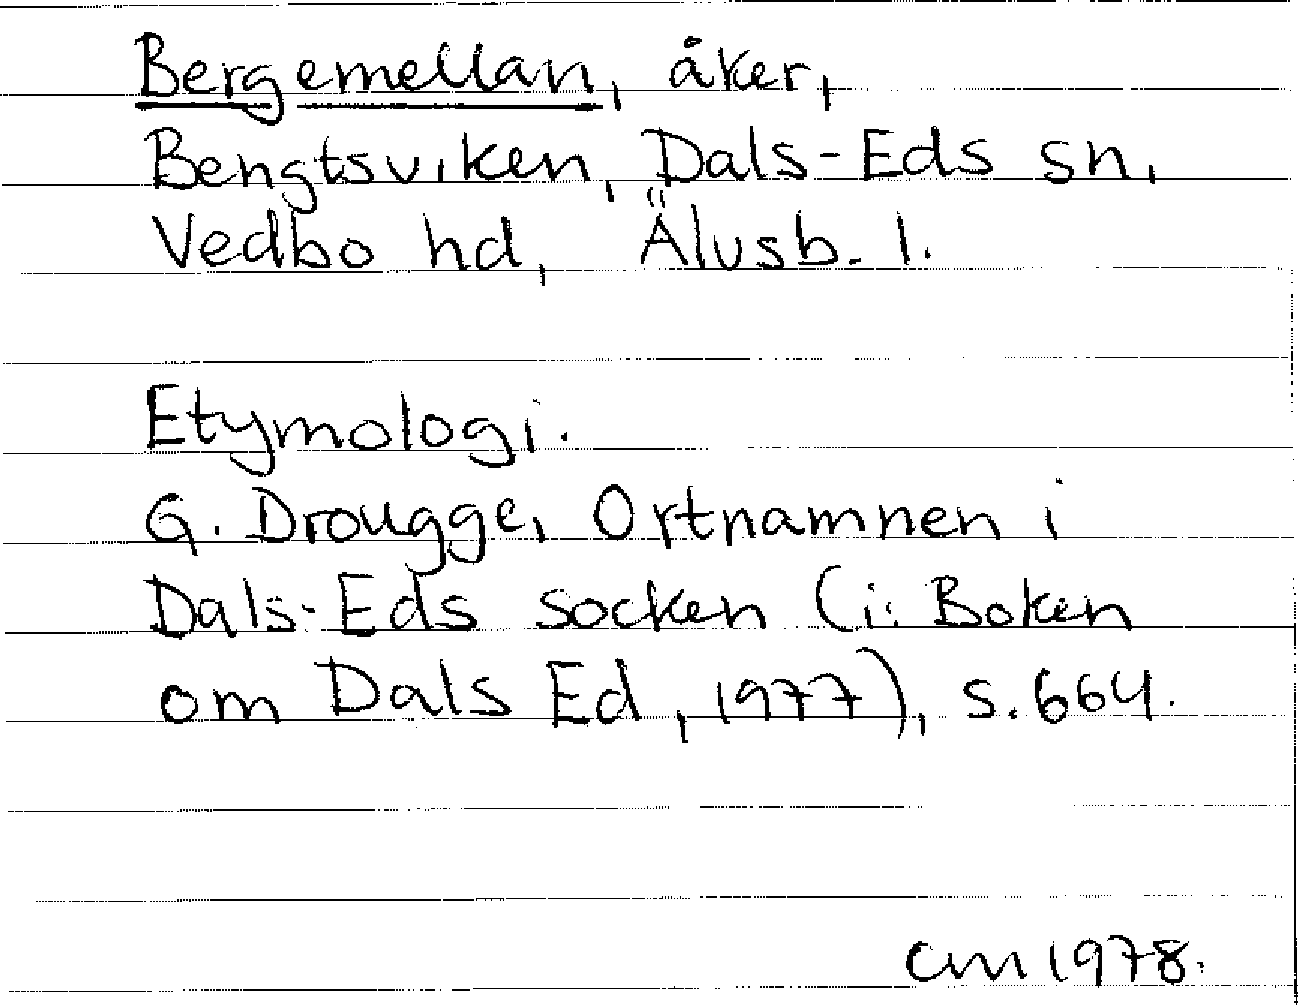 Bergemellan, åker,
Bengtsviken, Dals-Eds sn,
Vedbo hd, Älvsb. l.
Etymologi.
G. Drougge, Ortnamnen i
Dals-Eds socken (i: Boken
om Dals Ed, 1977), s. 664.
CM 1978.